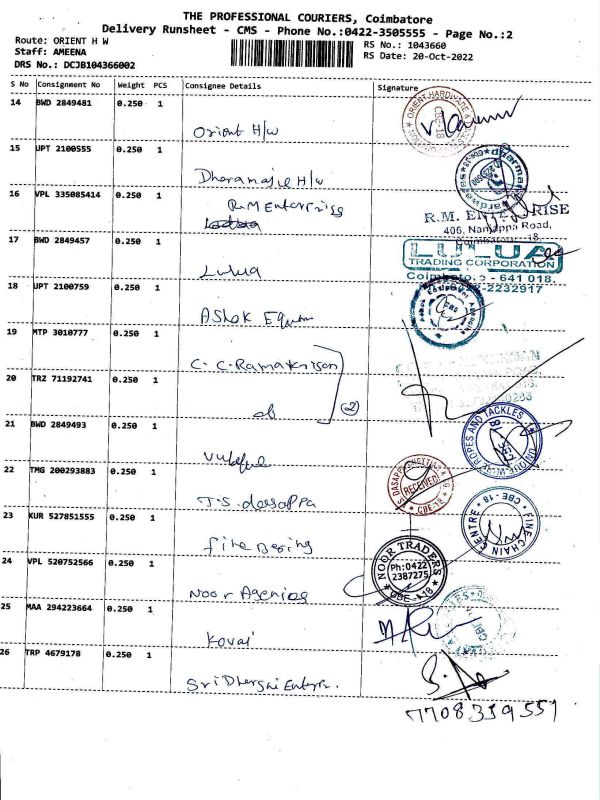 THE PROFESSIONAL COURIERS, Coimbatore
Delivery Runsheet - CMS - Phone No.:0422-3505555 - Page No.:2
Route: ORIENT H W
RS No.: 1043660
Staff: AMEENA
RS Date: 20-Oct-2022
DRS No.: DCJB104366002
S No Consignment No Weight PCS Consignee Details Signature
14 BWD 2849481 0.250 1
Orient H/W
ORIENT HARDWARE
CBE-18
15 UPT 2100555 0.250 1
H/W
16 VPL 335085414 0.250 1
R.M Enterprises
R.M. ENTERPRISE
406, Nanjappa Road,
Coimbatore - 18.
17 BWD 2849457 0.250 1
Lulua
LULUA
TRADING CORPORATION
Coimbatore - 641 018.
2232917
18 UPT 2100759 0.250 1
Ashok
19 MTP 3010777 0.250 1
C. C. Ramakrison
20 TRZ 71192741 0.250 1
(2)
21 BWD 2849493 0.250 1
ROPES AND TACKLES
22 TMG 200293883 0.250 1
T.S. dasappa
S DASAPPA SHETTY
RECEIVED
CBE-18
23 KUR 527851555 0.250 1
fine Bering
FINE CHAIN CENTRE
CBE - 18
24 VPL 520752566 0.250 1
Noor Agencies
NOOR TRADERS
Ph:0422
2387275
CBE-18
25 MAA 294223664 0.250 1
Kovai
26 TRP 4679178 0.250 1
Sri Dharshi Enterpr.
7708359551